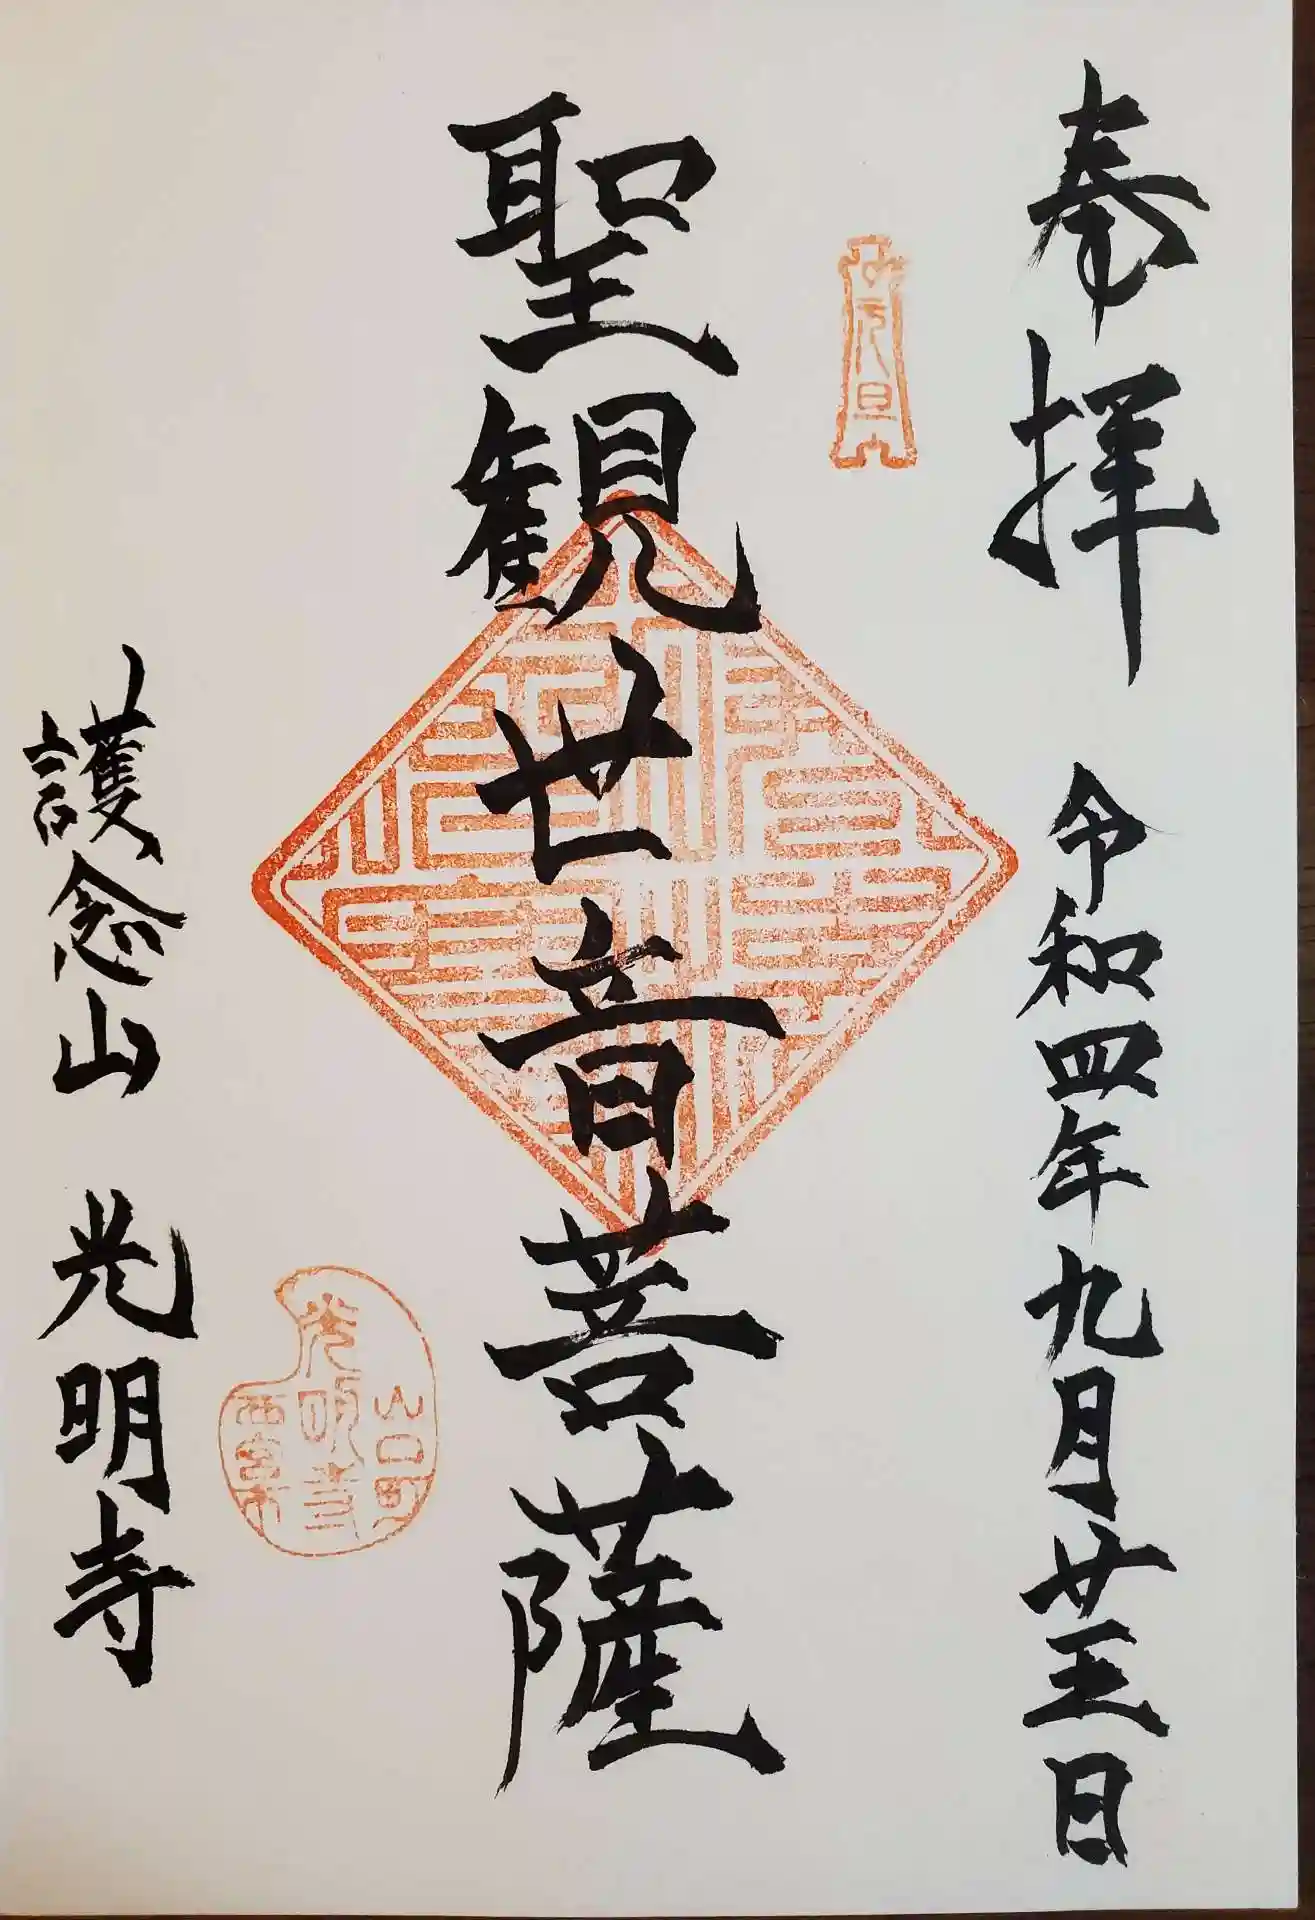 奉拝　令和四年九月廿五日
聖観世音菩薩
護念山　光明寺
山口町
光明寺
西宮市